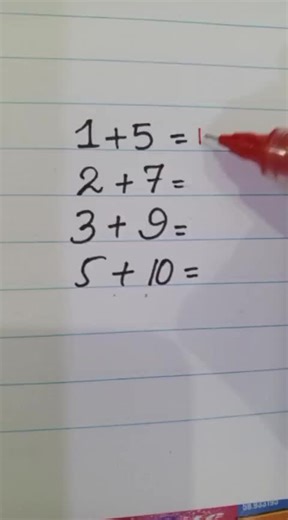 1+5=1
2+7=
3+9=
5+10=